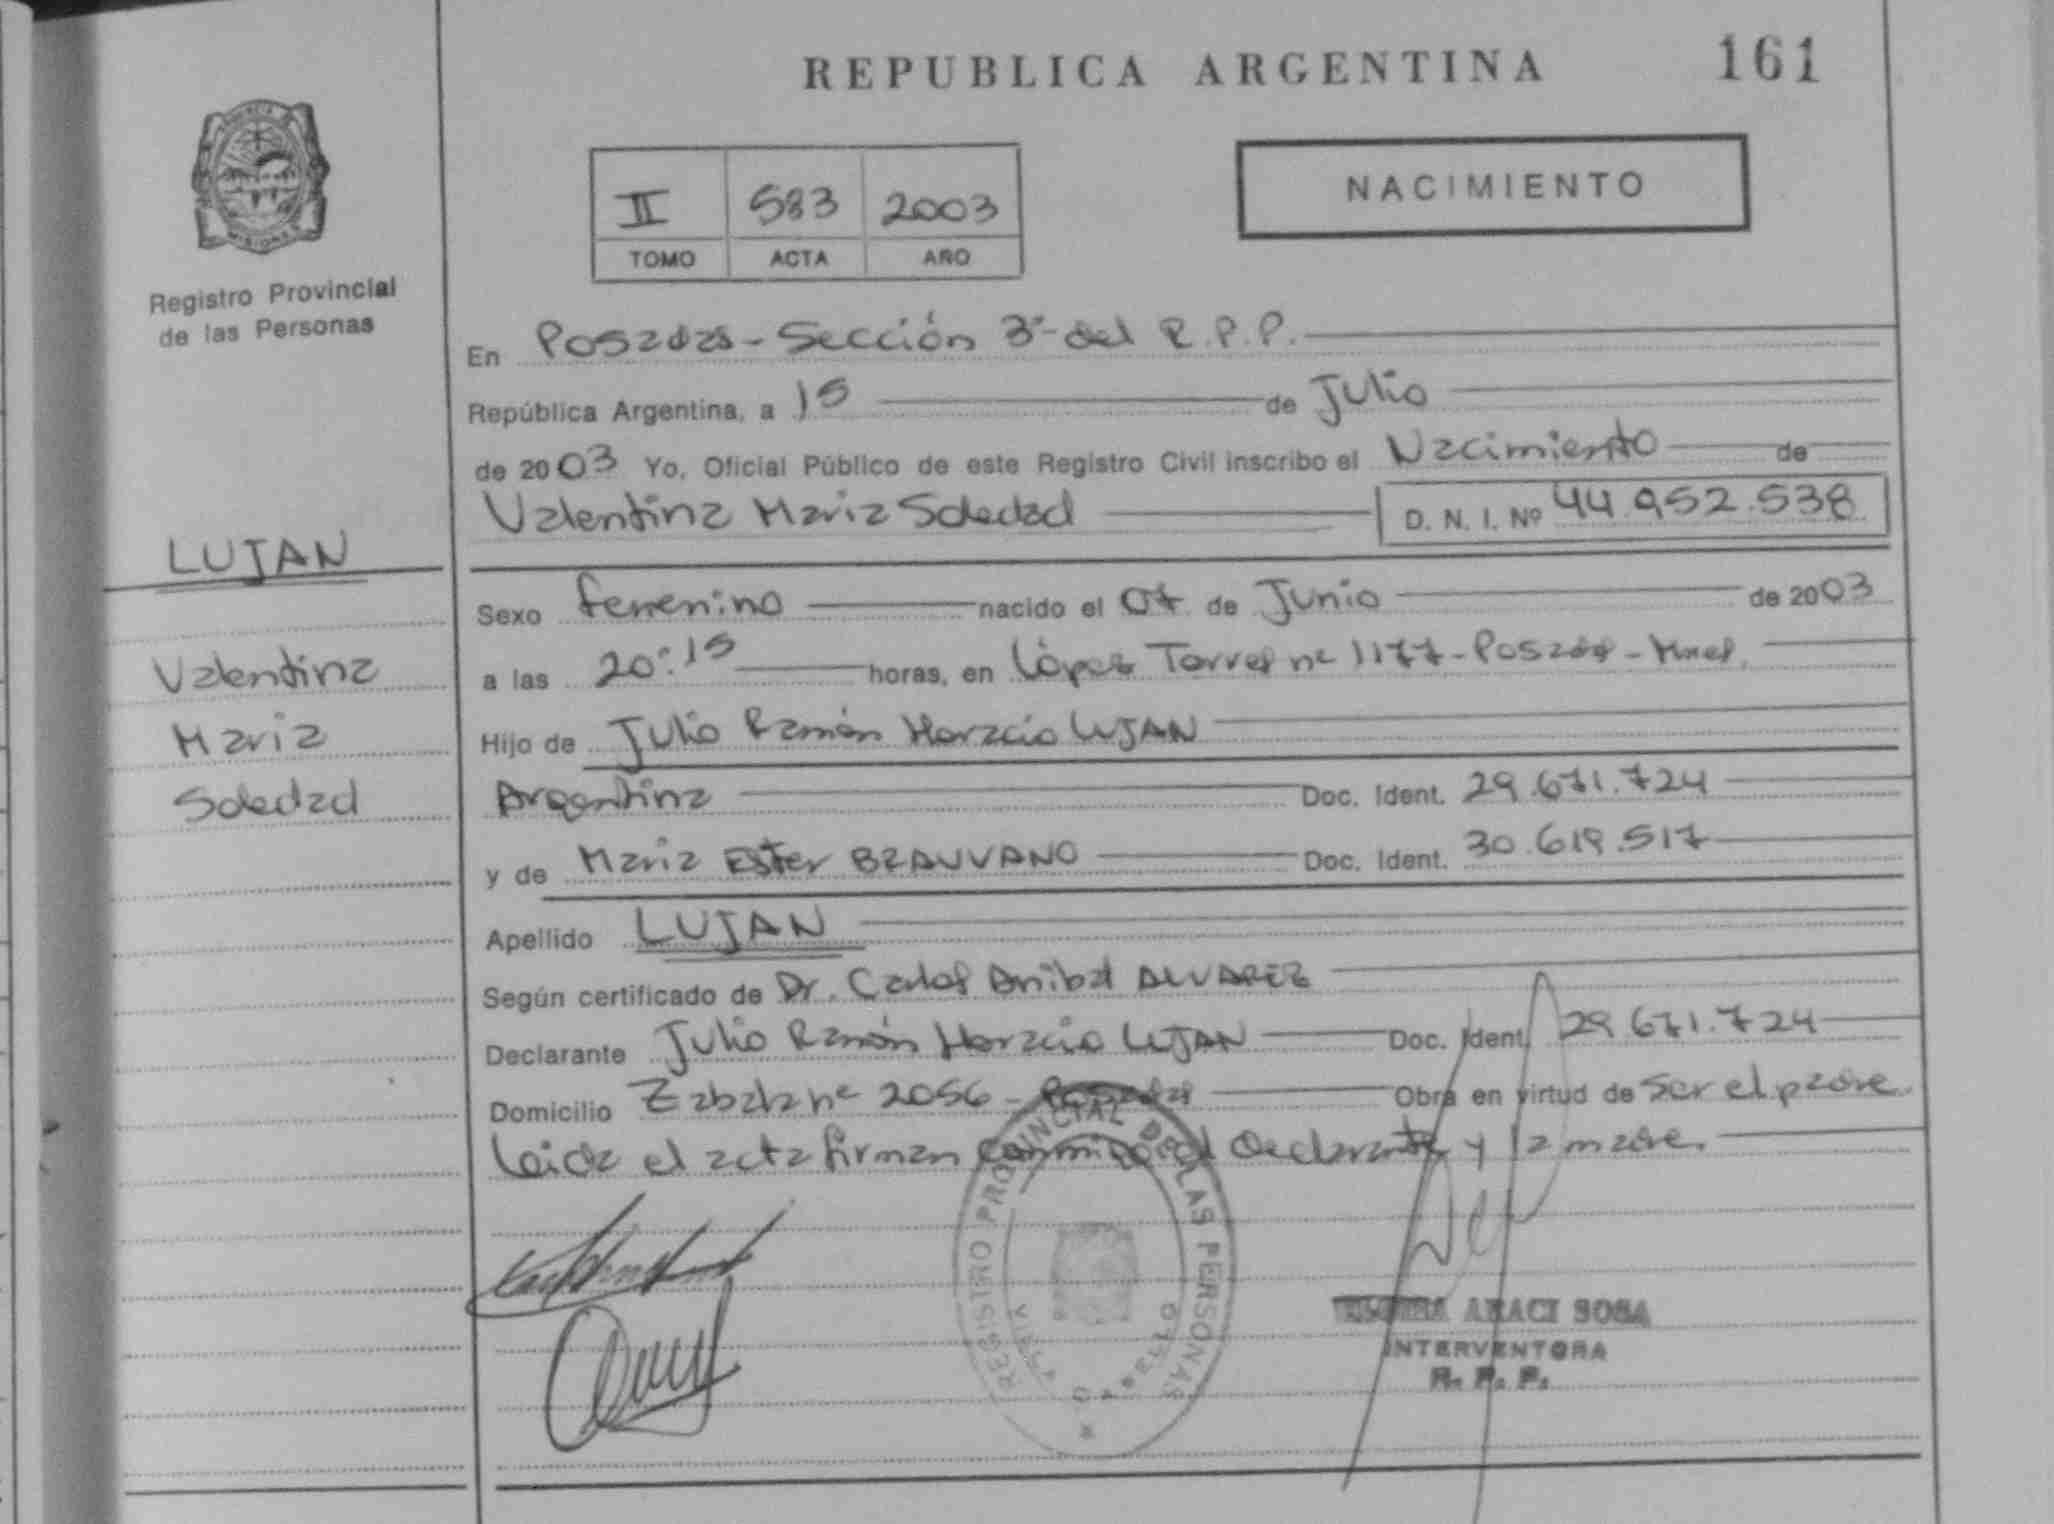 REPUBLICA ARGENTINA
161
PROVINCIA DE MISIONES
Registro Provincial
de las Personas
II 583 2003
TOMO ACTA AÑO
NACIMIENTO
En Posadas - Sección 3ª del R.P.P.
República Argentina, a 15 de Julio
de 2003 Yo, Oficial Público de este Registro Civil inscribo el Nacimiento de
Valentina Maria Soledad D. N. I. Nº 44.952.538
LUJAN
Valentina
Maria
Soledad
Sexo femenino nacido el 07 de Junio de 2003
a las 20:15 horas, en López Torres nº 1177 - Posadas - Mnes.
Hijo de Julio Ramón Horacio LUJAN
Argentina Doc. Ident. 29.671.724
y de Maria Ester Doc. Ident. 30.619.517
Apellido LUJAN
Según certificado de Dr. Carlos Anibal ALVAREZ
Declarante Julio Ramón Horacio LUJAN Doc. Ident. 29.671.724
Domicilio Zabala nº 2056 - Posadas Obra en virtud de ser el padre.
Leida el acta firman conmigo el declarante y la madre.
REGISTRO PROVINCIAL DE LAS PERSONAS
ARACI SOSA
INTERVENTORA
R. P. P.